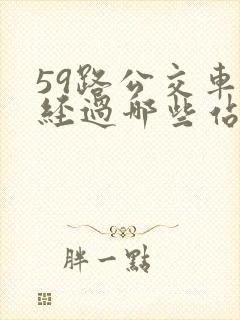 59路公交車
經過哪些佔
胖一點